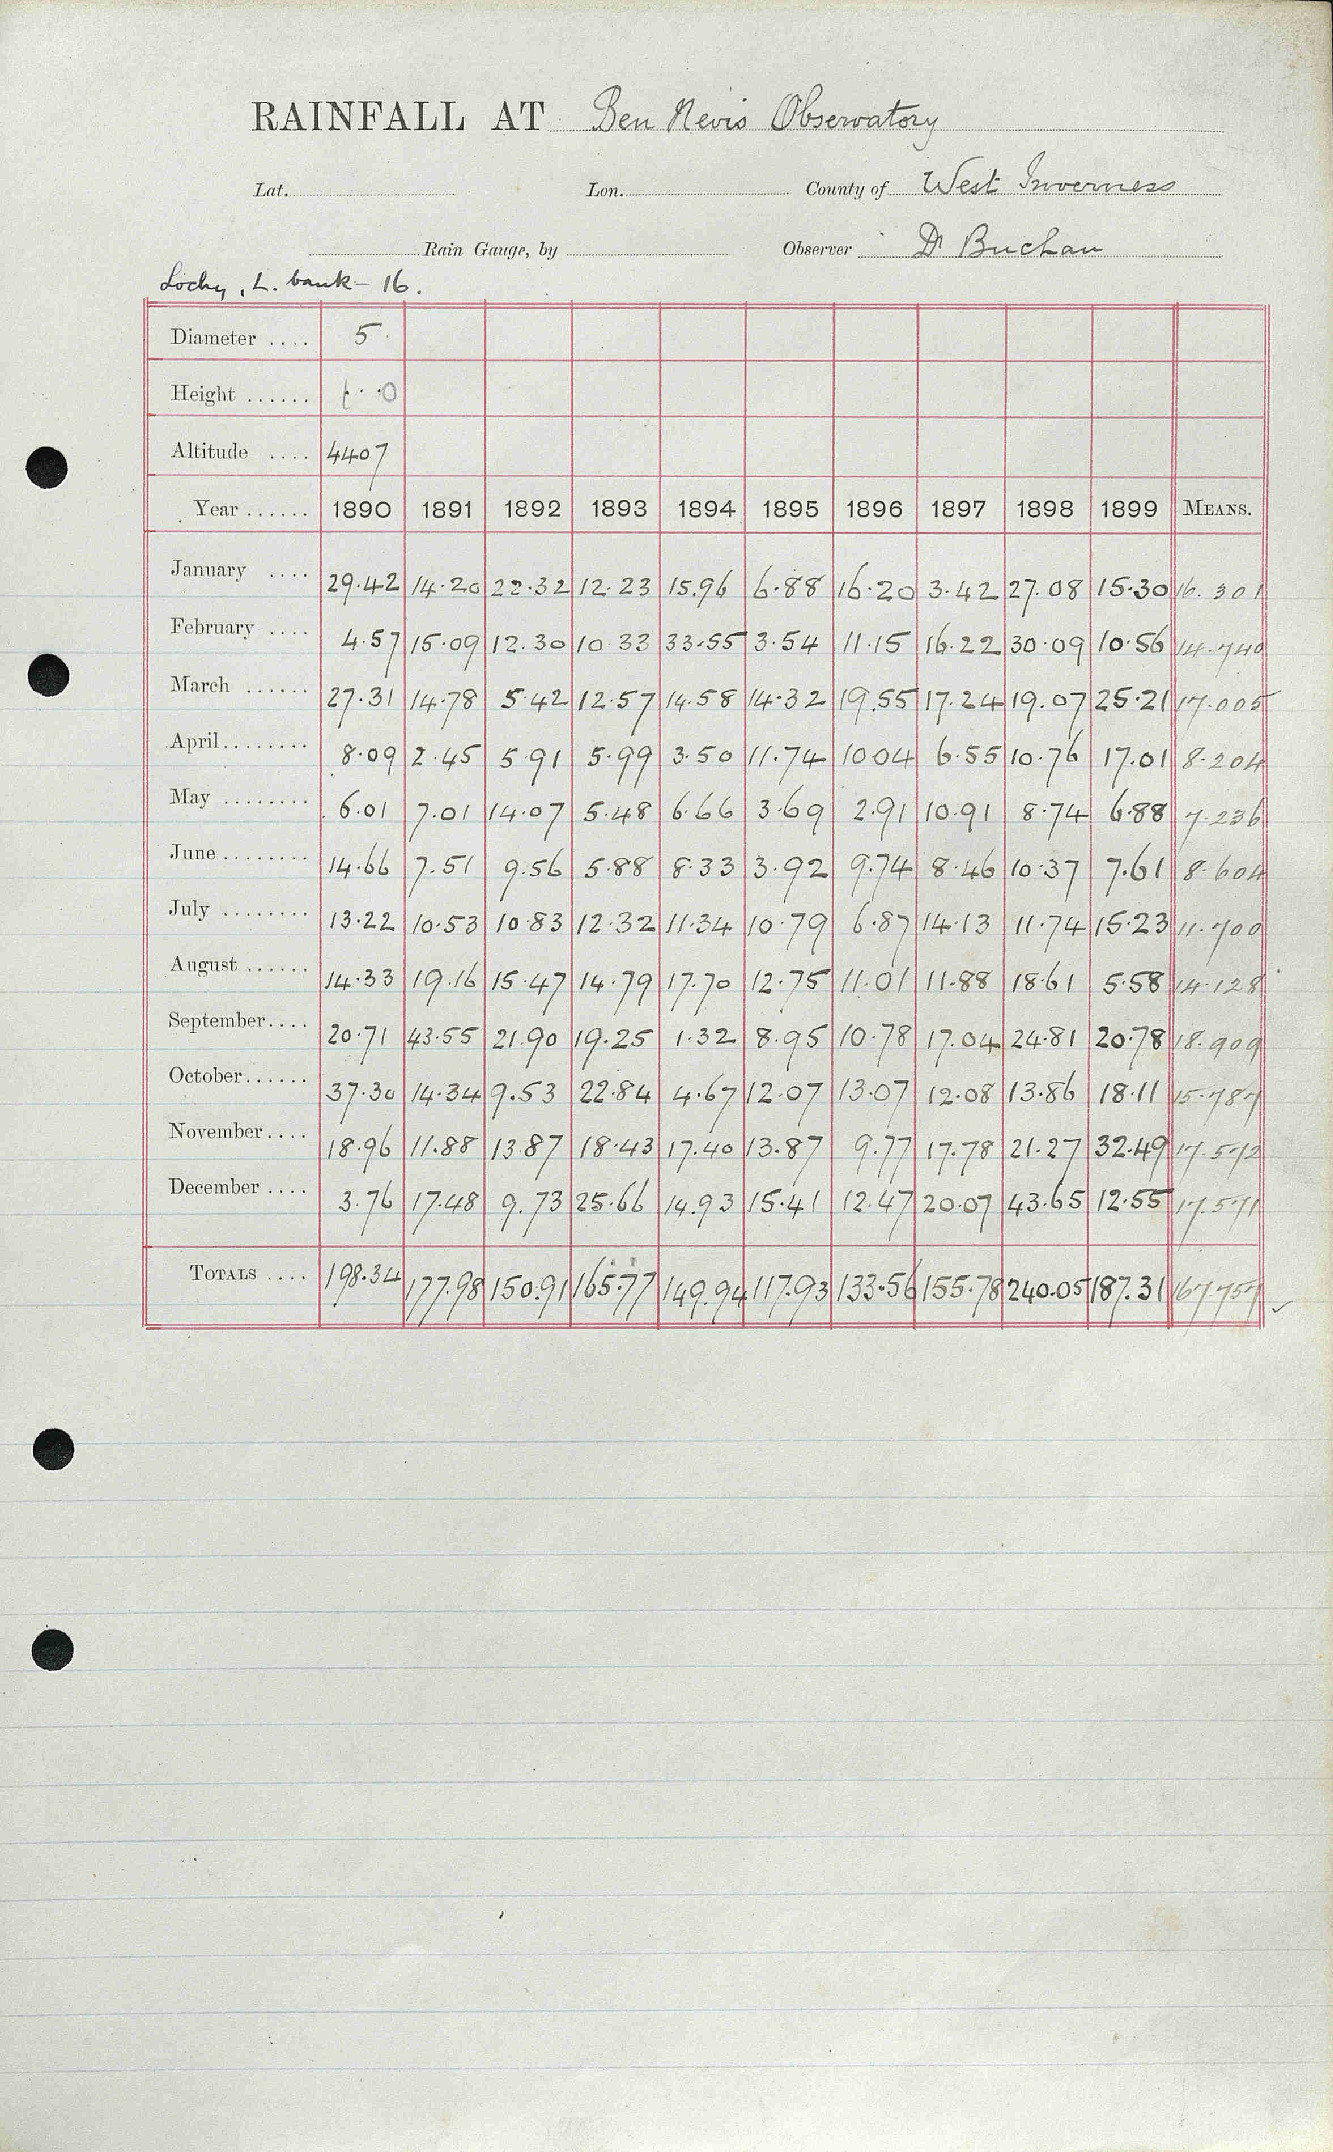 RAINFALL AT Ben Nevis Observatory
Lat. Lon. County of West Inverness
Rain Gauge, by Observer Dr Buchan
Lochy, L. bank - 16.
Diameter .... 5
Height ...... 1 · · 0
Altitude .... 4407
Year ...... 1890 1891 1892 1893 1894 1895 1896 1897 1898 1899 MEANS.
January .... 29.42 14.20 22.32 12.23 15.96 6.88 16.20 3.42 27.08 15.30 16.301
February .... 4.57 15.09 12.30 10 33 33.55 3.54 11.15 16.22 30.09 10.56 14.740
March ...... 27.31 14.78 5.42 12.57 14.58 14.32 19.55 17.24 19.07 25.21 17.005
April........ 8.09 2.45 5.91 5.99 3.50 11.74 10 04 6.55 10.76 17.01 8.204
May ........ 6.01 7.01 14.07 5.48 6.66 3.69 2.91 10.91 8.74 6.88 7.236
June ........ 14.66 7.51 9.56 5.88 8.33 3.92 9.74 8.46 10.37 7.61 8.604
July ........ 13.22 10.53 10.83 12.32 11.34 10.79 6.87 14.13 11.74 15.23 11.700
August ...... 14.33 19.16 15.47 14.79 17.70 12.75 11.01 11.88 18.61 5.58 14.128
September.... 20.71 43.55 21.90 19.25 1.32 8.95 10.78 17.04 24.81 20.78 18.909
October...... 37.30 14.34 9.53 22.84 4.67 12.07 13.07 12.08 13.86 18.11 15.787
November.... 18.96 11.88 13.87 18.43 17.40 13.87 9.77 17.78 21.27 32.49 17.572
December .... 3.76 17.48 9.73 25.66 14.93 15.41 12.47 20.07 43.65 12.55 17.571
TOTALS .... 198.34 177.98 150.91 165.77 149.94 117.93 133.56 155.78 240.05 187.31 167.757